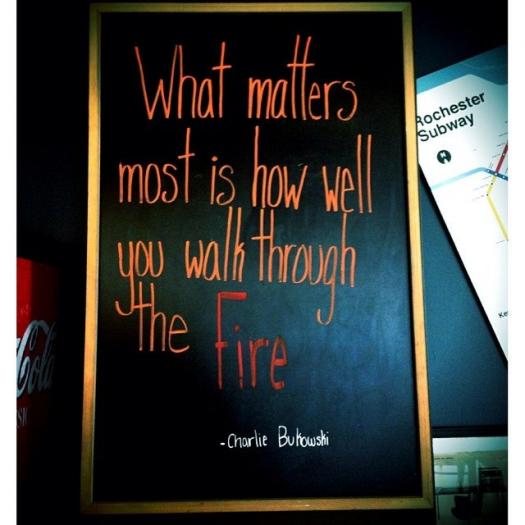 What matters
most is how well
you walk through
the Fire
-Charlie Bukowski
Rochester
Subway
Cola